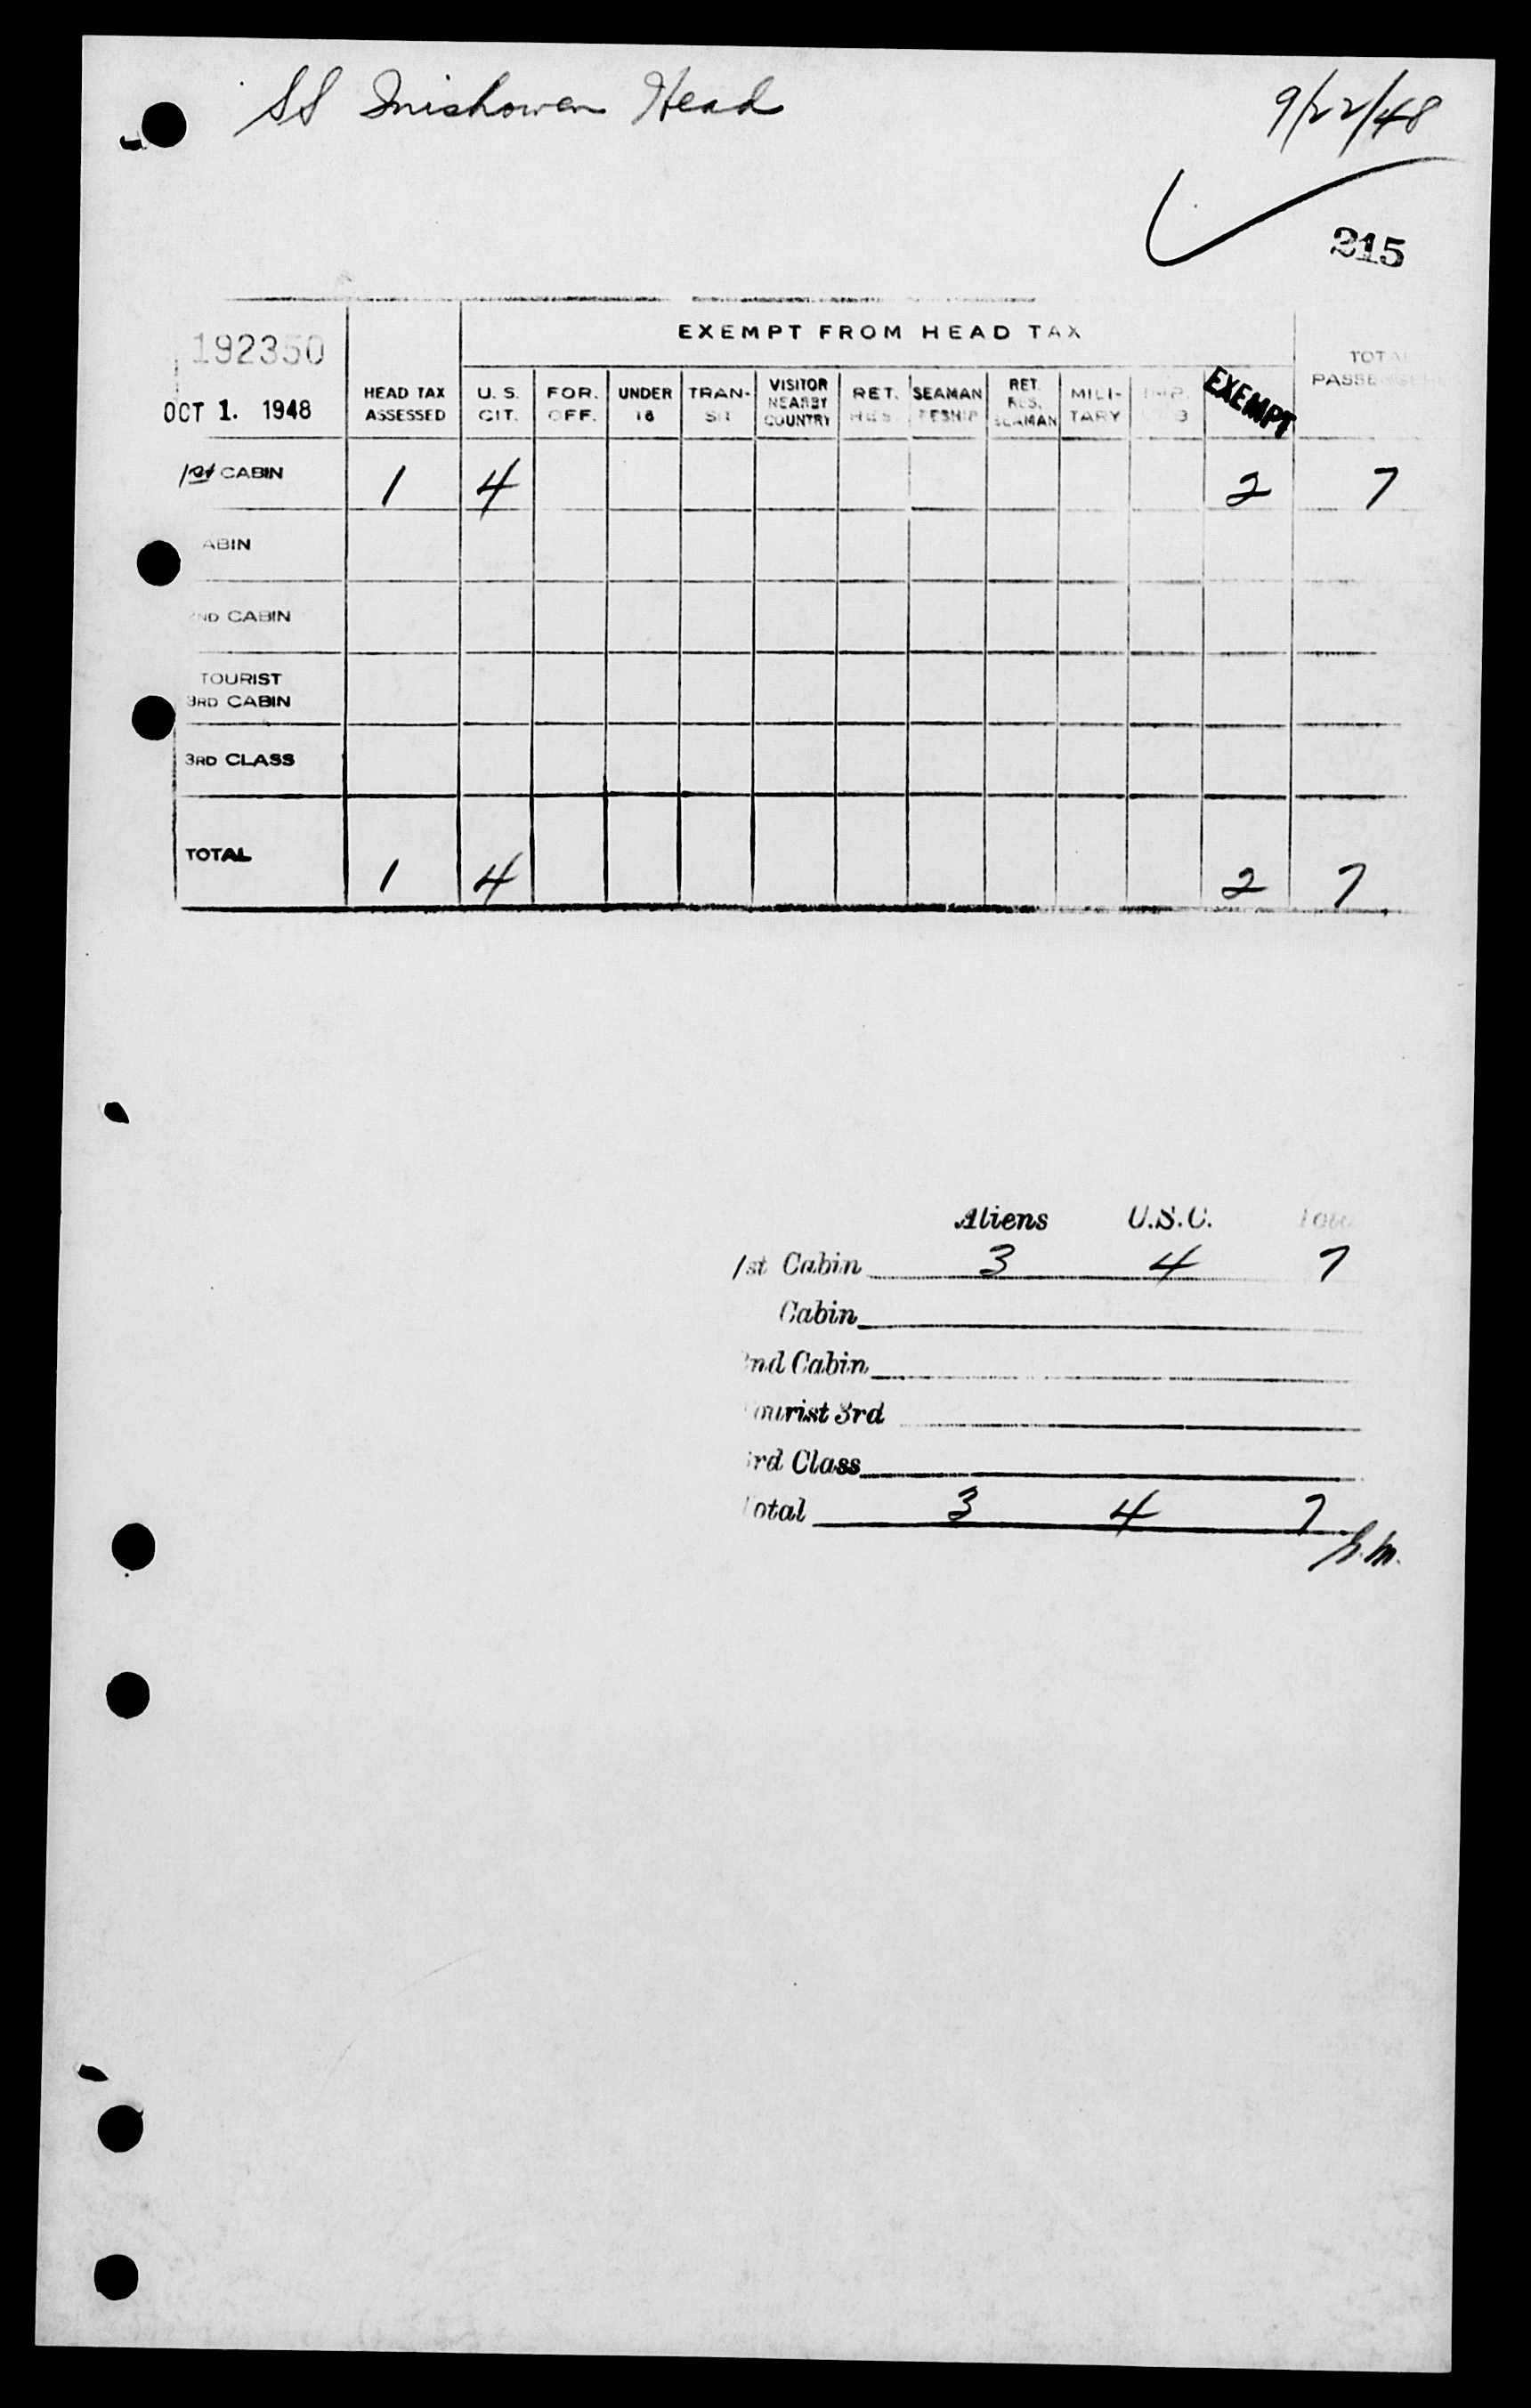 SS Inishowen Head 9/22/48
215
EXEMPT FROM HEAD TAX
192350
OCT 1. 1948
HEAD TAX ASSESSED U. S. CIT. FOR. OFF. UNDER 16 TRAN- VISITOR NEARBY COUNTRY RET. RES. SEAMAN RET. RES. SEAMAN MILI- TARY EXEMPT TOTAL PASSENGERS
1st CABIN 1 4 2 7
CABIN
2ND CABIN
TOURIST
3RD CABIN
3RD CLASS
TOTAL 1 4 2 7
Aliens U.S.C. Total
1st Cabin 3 4 7
Cabin
2nd Cabin
Tourist 3rd
3rd Class
Total 3 4 7